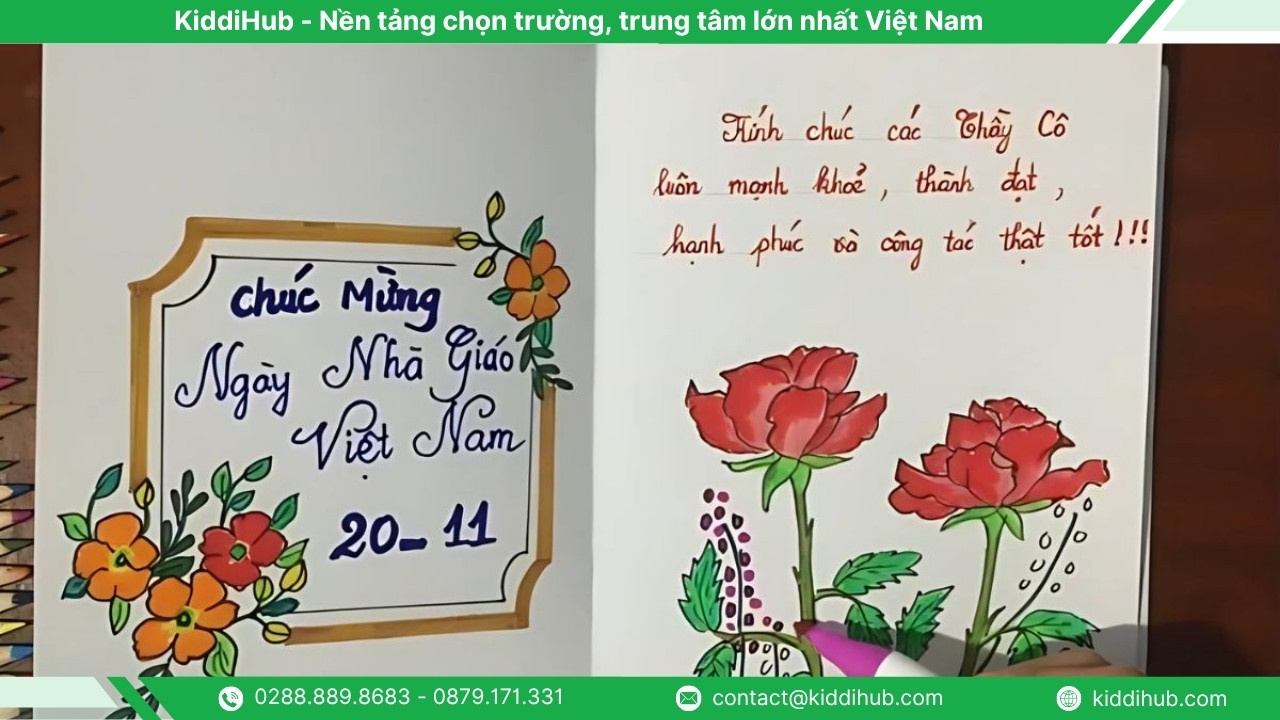 KiddiHub - Nền tảng chọn trường, trung tâm lớn nhất Việt Nam
Chúc Mừng
Ngày Nhà Giáo
Việt Nam
20-11
Kính chúc các Thầy Cô
luôn mạnh khoẻ, thành đạt,
hạnh phúc và công tác thật tốt!!!
0288.889.8683 - 0879.171.331
contact@kiddihub.com
kiddihub.com